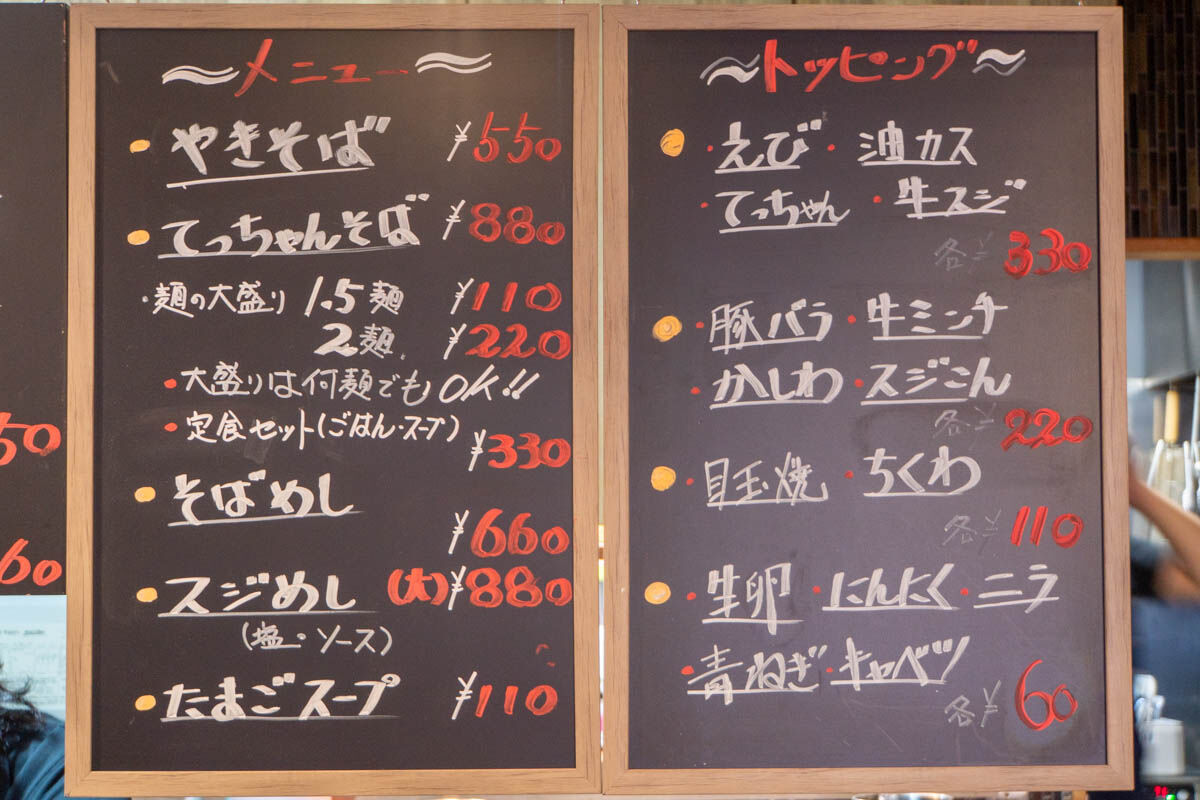 50
60
〜メニュー〜
やきそば ¥550
てっちゃんそば ¥880
・麺の大盛り 1.5麺 ¥110
2麺 ¥220
・大盛りは何麺でもOK!!
・定食セット(ごはん・スープ) ¥330
そばめし ¥660
スジめし (大)¥880
(塩・ソース)
たまごスープ ¥110
〜トッピング〜
・えび・油カス
・てっちゃん・牛スジ
各¥330
・豚バラ・牛ミンチ
・かしわ・スジこん
各¥220
・目玉焼・ちくわ
各¥110
・生卵・にんにく・ニラ
・青ねぎ・キャベツ
各¥60